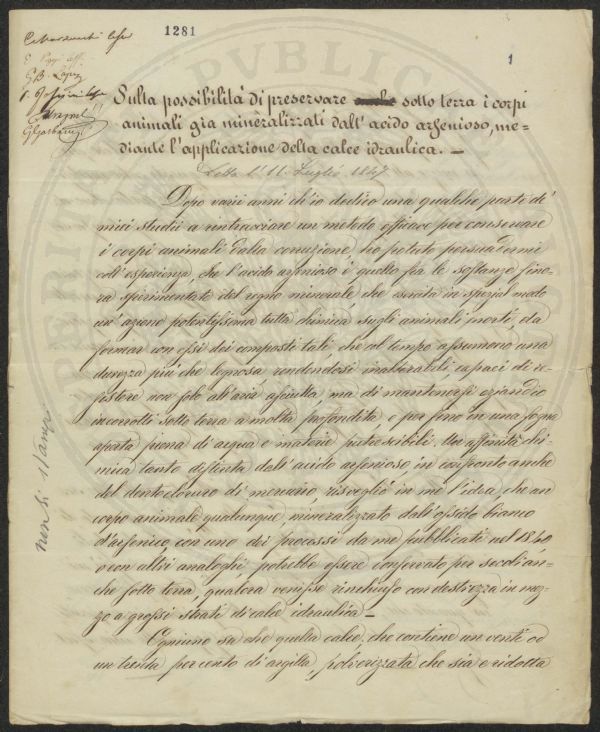 1281
1
Sulla possibilità di preservare anche sotto terra i corpi
animali gia mineralizzati dall' acido arsenioso, me=
diante l'applicazione della calce idraulica. —
Letta l'11 Luglio 1847
Dopo varii anni ch'io dedico una qualche parte de'
miei studii a rintracciare un metodo efficace per conservare
i corpi animali dalla corruzione, ho potuto persuadermi
coll'esperienza, che l'acido arsenioso è quello fra le sostanze fino-
ra sperimentate del regno minerale che esercita in special modo
un'azione potentissima tutta chimica sugli animali morti, da
formar con essi dei composti tali, che col tempo assumono una
durezza più che legnosa rendendosi inalterabili capaci di re-
sistere non solo all'aria asciutta, ma di mantenersi eziandio
incorrotti sotto terra a molta profondità, e per fino in una fogna
aperta piena di acqua e materie putrescibili. Un'affinità chi-
mica tanto distinta dell'acido arsenioso in confronto anche
del deutocloruro di mercurio, risvegliò in me l'idea, che un
corpo animale qualunque, mineralizzato dall'ossido bianco
d'arsenico con uno dei processi da me pubblicati nel 1840
o con altri analoghi, potrebbe essere conservato per secoli an-
che sotto terra, qualora venisse rinchiuso con destrezza in mez-
zo a grossi strati di calce idraulica —
Ognuno sa che quella calce, che contiene un venti od
un trenta per cento di argilla, polverizzata che sia e ridotta
non si stampi